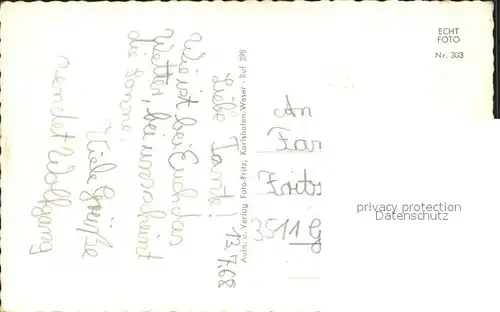 13.7.68
Liebe Tante!
Wie ist bei Euch das
Wetter, bei uns scheint
die Sonne.
Viele Grüße
sendet Wolfgang
Aufn. u. Verlag Foto-Fritz, Karlshafen/Weser · Ruf 398
ECHT
FOTO
Nr. 303
An
Fam
Fritz
3511
privacy protection
Datenschutz